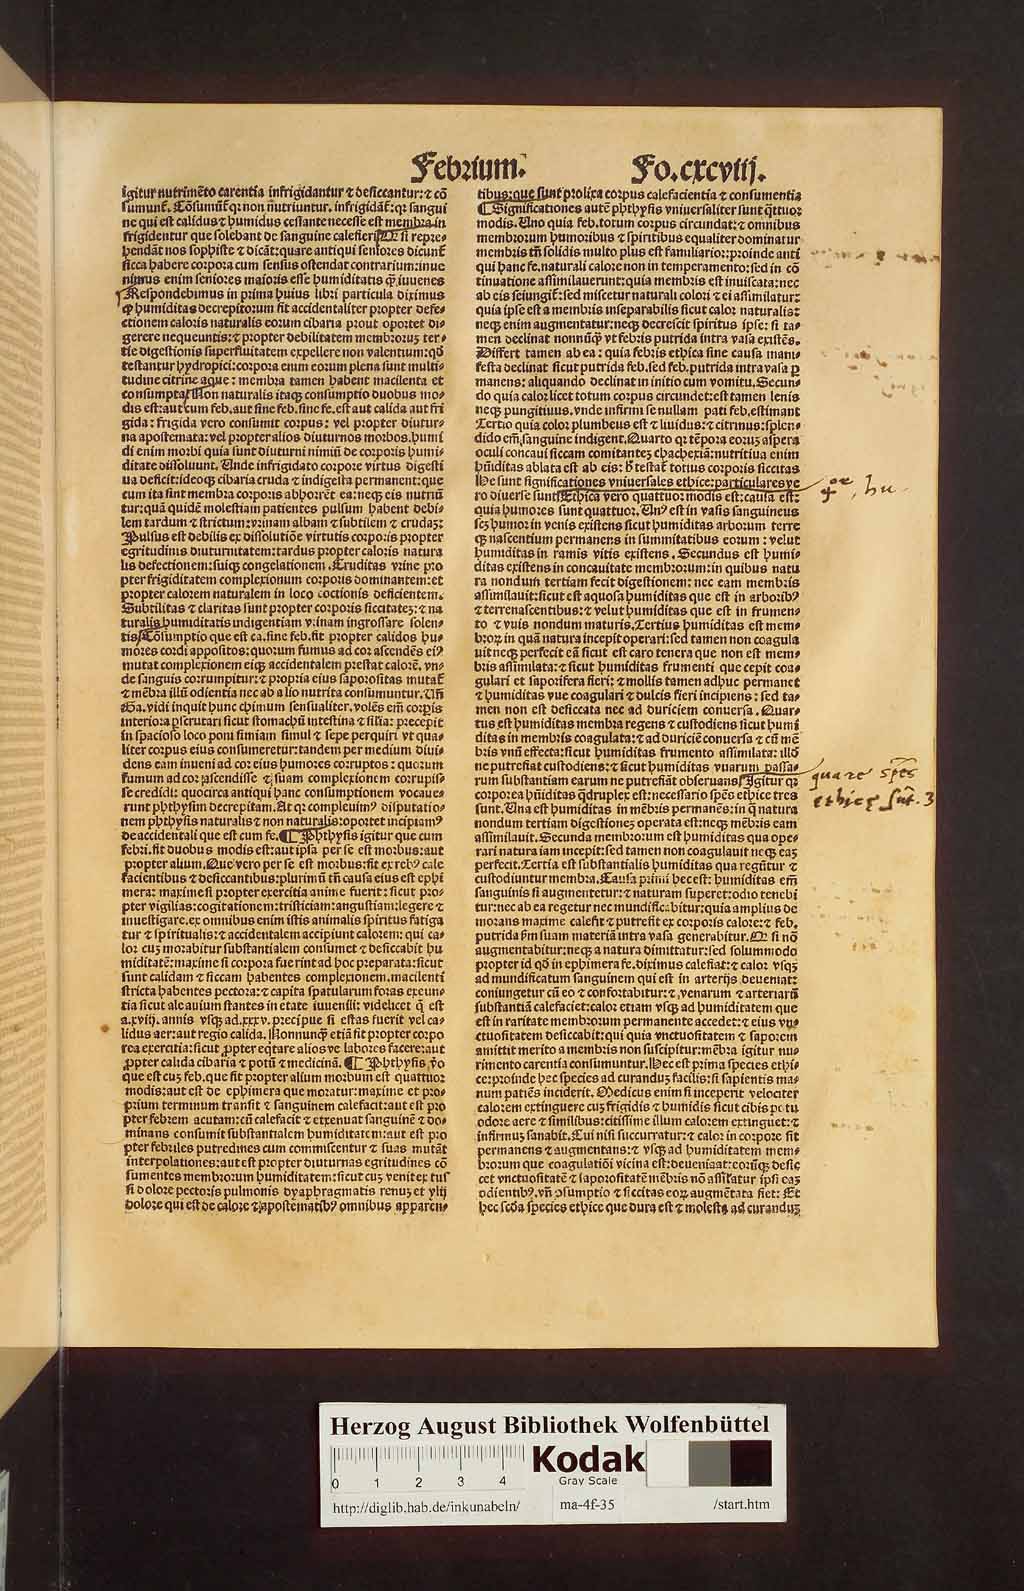 Febrium.
Fo.cxcviij.
igitur nutrimẽto carentia infrigidantur ⁊ desiccantur: ⁊ cõ
sumunt̃. Cõsumũt̃ q: non nutriuntur. infrigidãt̃: q: sangui
ne qui est calidus ⁊ humidus cessante necesse est membra in
frigidentur que solebant de sanguine calefieri. Qr si repre-
hendãt nos sophiste ⁊ dicãt: quare antiqui seniores dicunt̃
sicca habere corpora cum sensus ostendat contrarium: inue
nimus enim seniores maioris esse humiditatis q̃ iuuenes
Respondebimus in prima huius libri particula diximus
ꝙ humiditas decrepitorum fit accidentaliter propter defe-
ctionem caloris naturalis eorum cibaria prout oportet di-
gerere nequeuntis: ⁊ propter debilitatem membrorum ter-
tie digestionis superfluitatem expellere non valentum: qđ
testantur hydropici: corpora enim eorum plena sunt multi-
tudine citrine aque: membra tamen habent macilenta et
consumpta. Non naturalis itaq̃ consumptio duobus mo-
dis est: aut cum feb. aut sine feb. sine fe. est aut calida aut fri
gida: frigida vero consumit corpus: vel propter diutur-
na apostemata: vel propter alios diuturnos morbos. humi
di enim morbi quia sunt diuturni nimiũ de corporis humi-
ditate dissoluunt. Unde infrigidato corpore virtus digesti
ua deficit: ideoq̃ cibaria cruda ⁊ indigesta permanent: que
cum ita sint membra corporis abhorrẽt ea: neq̃ eis nutriũ
tur: quã quidẽ molestiam patientes pulsum habent debi-
lem tardum ⁊ strictum: vrinam albam ⁊ subtilem ⁊ crudaz:
Pulsus est debilis ex dissolutiõe virtutis corporis propter
egritudinis diuturnitatem: tardus propter caloris natura
lis defectionem: suiq̃ congelationem. Cruditas vrine pro
pter frigiditatem complexionum corporis dominantem: et
propter calorem naturalem in loco coctionis deficientem.
Subtilitas ⁊ claritas sunt propter corporis siccitatez: ⁊ na
turalis humiditatis indigentiam vrinam ingrossare solen-
tis. Cõsumptio que est ca. sine feb. fit propter calidos hu-
mores cordi appositos: quorum fumus ad cor ascendẽs ei⁹
mutat complexionem eiq̃ accidentalem prestat calorẽ. vn-
de sanguis corrumpitur: ⁊ propria eius saporositas mutat̃
⁊ mẽbra illũ odientia nec ab alio nutrita consumuntur. Uñ
Ga. vidi inquit hunc thimum sensualiter. volẽs em̃ corpis
interiora pscrutari sicut stomachũ intestina ⁊ silia: precepit
in spacioso loco poni simiam simul ⁊ sepe perquiri vt qua-
liter corpus eius consumeretur: tandem per medium diui-
dens eam inueni ad cor eius humores corruptos: quorum
fumum ad cor ascendisse ⁊ suam complexionem corrupis-
se credidi: quocirca antiqui hanc consumptionem vocaue-
runt phthysim decrepitam. At qr compleuim⁹ disputatio-
nem phthysis naturalis ⁊ non naturalis: oportet incipiam⁹
de accidentali que est cum fe. ¶ Phthysis igitur que cum
febri. fit duobus modis est: aut ipsa per se est morbus: aut
propter alium. Que vero per se est morbus: fit ex reb⁹ cale
facientibus ⁊ desiccantibus: plurimũ tñ causa eius est ephi
mera: maxime si propter exercitia anime fuerit: sicut pro-
pter vigilias: cogitationem: tristiciam: angustiam: legere ⁊
inuestigare. ex omnibus enim istis animalis spiritus fatiga
tur ⁊ spiritualis: ⁊ accidentalem accipiunt calorem: qui ca-
lor cuz morabitur substantialem consumet ⁊ desiccabit hu
miditatẽ: maxime si corpora fuerint ad hoc preparata: sicut
sunt calidam ⁊ siccam habentes complexionem. macilenti
stricta habentes pectora: ⁊ capita spatularum foras exeun-
tia sicut ale auium stantes in etate iuuenili: videlicet q̃ est
a. xviij. annis vsq̃ ad. xxxv. precipue si estas fuerit vel ca-
lidus aer: aut regio calida. Nonnunq̃ etiã fit propter corpo
rea exercitia: sicut ꝓpter eq̃tare alios ve labores facere: aut
ꝓpter calida cibaria ⁊ potũ ⁊ medicinã. ¶ Phthysis ṽo
que est cuz feb. que fit propter alium morbum est quattuor
modis: aut est de ephimera que moratur: maxime et pro-
prium terminum transit ⁊ sanguinem calefacit: aut est pro
pter febrem acutam: cũ calefacit ⁊ extenuat sanguinẽ ⁊ do-
minans consumit substantialem humiditatem: aut est pro
pter febriles putredines cum commiscentur ⁊ suas mutãt
interpolationes: aut est propter diuturnas egritudines cõ
sumentes membrorum humiditatem: sicut cuz venit ex tus
si dolore pectoris pulmonis dyaphragmatis renuz et ylij
dolore qui est de calore ⁊ apostematib⁹ omnibus apparen-
tibus: que sunt prolixa corpus calefacientia ⁊ consumentia
¶ Significationes autẽ phthysis vniuersaliter sunt q̃ttuor
modis. Uno quia feb. totum corpus circundat: ⁊ omnibus
membrorum humoribus ⁊ spiritibus equaliter dominatur
membris tñ solidis multo plus est familiarior: proinde anti
qui hanc fe. naturali calore non in temperamento: sed in cõ
tinuatione assimilauerunt: quia membris est inuiscata: nec
ab eis seiungit̃: sed miscetur naturali colori ⁊ ei assimilatur:
quia ipse est a membris inseparabilis sicut calor naturalis:
neq̃ enim augmentatur: neq̃ decrescit spiritus ipse: si ta-
men declinat nonnũq̃ vt febris putrida intra vasa existẽs.
Differt tamen ab ea: quia febris ethica sine causa mani-
festa declinat sicut putrida feb. sed feb. putrida intra vasa p
manens: aliquando declinat in initio cum vomitu. Secun-
do quia calor: licet totum corpus circundet: est tamen lenis
neq̃ pungitiuus. vnde infirmi se nullam pati feb. estimant
Tertio quia color plumbeus est ⁊ liuidus: ⁊ citrinus: splen-
dido em̃ sanguine indigent. Quarto qr tẽpora eoruz aspera
oculi concaui siccam comitantez chachexiã: nutritiua enim
hũiditas ablata est ab eis: h̃ testat̃ totius corporis siccitas
He sunt significationes vniuersales ethice: particulares ve
ro diuerse sunt. Ethica vero quattuor modis est: causa est:
quia humores sunt quattuor. Un⁹ est in vasis sanguineus
scz humor in venis existens sicut humiditas arborum terre
q̃ nascentium permanens in summitatibus eorum: velut
humiditas in ramis vitis existens. Secundus est humi-
ditas existens in concauitate membrorum: in quibus natu
ra nondum tertiam fecit digestionem: nec eam membris
assimilauit: sicut est aquosa humiditas que est in arborib⁹
⁊ terrenascentibus: ⁊ velut humiditas que est in frumen-
to ⁊ vuis nondum maturis. Tertius humiditas est mem-
bror in quã natura incepit operari: sed tamen non coagula
uit neq̃ perfecit eã sicut est caro tenera que non est mem-
bris assimilata: ⁊ sicut humiditas frumenti que cepit coa-
gulari et saporifera fieri: ⁊ mollis tamen adhuc permanet
⁊ humiditas vue coagulari ⁊ dulcis fieri incipiens: sed ta-
men non est desiccata nec ad duriciem conuersa. Quar-
tus est humiditas membra regens ⁊ custodiens sicut humi
ditas in membris coagulata: ⁊ ad duriciẽ conuersa ⁊ cũ mẽ
bris vnũ effecta: sicut humiditas frumento assimilata: illđ
ne putrefiat custodiens: ⁊ sicut humiditas vuarum passa-
rum substantiam earum ne putrefiãt obseruans. Igitur qr
corporea hũiditas q̃druplex est: necessario spẽs ethice tres
sunt. Una est humiditas in mẽbris permanẽs: in q̃ natura
nondum tertiam digestiones operata est: neq̃ mẽbris eam
assimilauit. Secunda membrorum est humiditas qua ope-
rari natura iam incepit: sed tamen non coagulauit neq̃ eaz
perfecit. Tertia est substantialis humiditas qua regũtur ⁊
custodiuntur membra. Causa primi hec est: humiditas em̃
sanguinis si augmentetur: ⁊ naturam superet: odio tenebi
tur: nec ab ea regetur nec mundificabitur: quia amplius de
morans maxime calefit ⁊ putrefit ex corporis calore: ⁊ feb.
putrida pm̃ suam materiã intra vasa generabitur. Qr si nõ
augmentabitur: neq̃ a natura dimittatur: sed solummodo
propter id qđ in ephimera fe. diximus calefiat: ⁊ calor vsq̃
ad mundificatum sanguinem qui est in arterijs deueniat:
coniungetur cũ eo ⁊ confortabitur: ⁊ venarum ⁊ arteriarũ
substantiã calefaciet: calor etiam vsq̃ ad humiditatem que
est in raritate membrorum permanente accedet: ⁊ eius vn-
ctuositatem desiccabit: qui quia vnctuositatem ⁊ saporem
amittit merito a membris non suscipitur: mẽbra igitur nu-
rimento carentia consumuntur. Hec est prima species ethi-
ce: proinde hec species ad curanduz facilis: si sapientis ma-
num patiẽs inciderit. Medicus enim si inceperit velociter
calorem extinguere cuz frigidis ⁊ humidis sicut cibis potu
odore aere ⁊ similibus: citissime illum calorem extinguet: ⁊
infirmuz sanabit. Cui nisi succurratur: ⁊ calor in corpore fit
permanens ⁊ augmentans: ⁊ vsq̃ ad humiditatem mem-
brorum que coagulatiõi vicina est: deueniat: eorũq̃ desic
cet vnctuositatẽ ⁊ saporositatẽ mẽbris nõ assilatur ipsi eaz
odientib⁹. vñ ꝓsumptio ⁊ siccitas eor augmẽtata fiet: Et
hec scđa species ethice que dura est ⁊ molesta ad curanduz
quare spẽs
ethicę sũt. 3
Herzog August Bibliothek Wolfenbüttel
0 1 2 3 4
Kodak
Gray Scale
http://diglib.hab.de/inkunabeln/
ma-4f-35
/start.htm